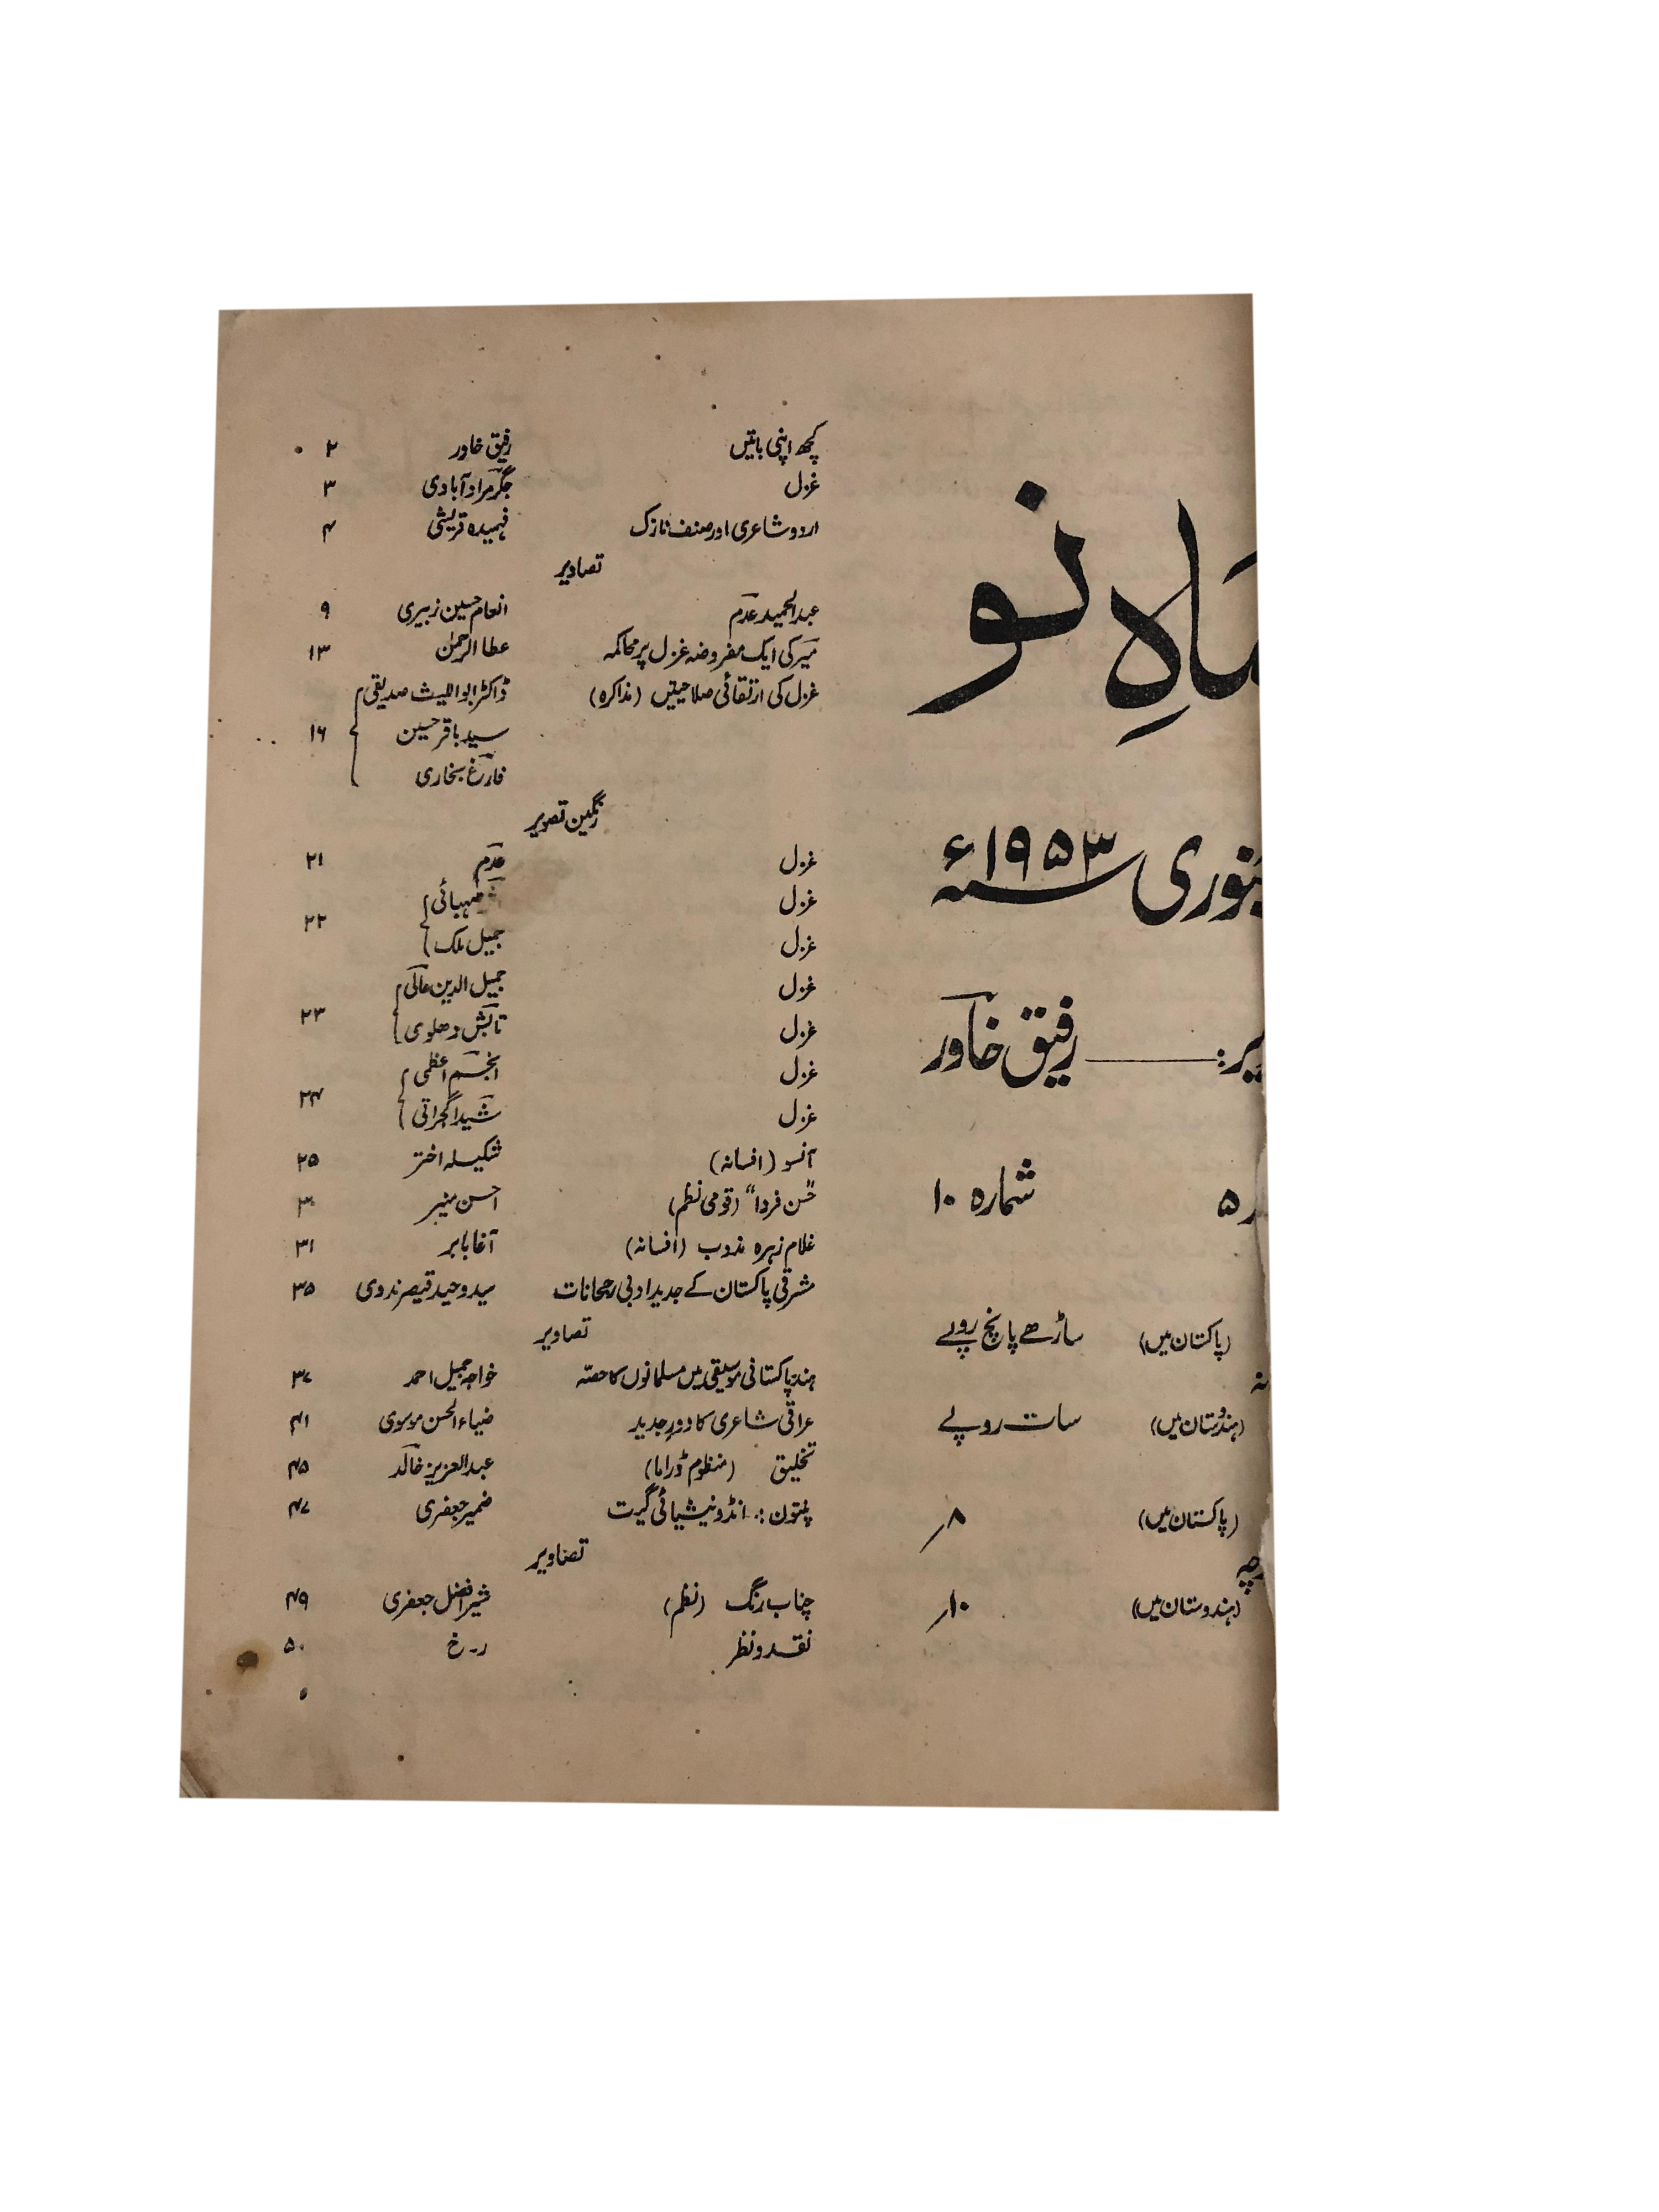 ماہِ نو
جنوری سنہ ۱۹۵۳ء
رفیق خاور
۵ شمارہ ۱۰
(پاکستان میں) ساڑھے پانچ روپے
(ہندوستان میں) سات روپے
(پاکستان میں) ۸؍
(ہندوستان میں) ۱۰؍
کچھ اپنی باتیں رفیق خاور ۲
غزل جگر مرادآبادی ۳
اردو شاعری اور صنف نازک فہمیدہ قریشی ۴
تصاویر
عبدالحمید عدم انعام حسین زبیری ۹
میر کی ایک مفروضہ غزل پر محاکمہ عطا الرحمٰن ۱۳
غزل کی ارتقائی صلاحیتیں (مذاکرہ) ڈاکٹر ابواللیث صدیقی
سید باقر حسین ۱۶
فارغ بخاری
رنگین تصویر
غزل عدم ۲۱
غزل صہبائی
۲۲
غزل جمیل ملک
غزل جمیل الدین عالی
۲۳
غزل تابش دھلوی
غزل انجم اعظمی
۲۴
غزل شیدا گجراتی
آنسو (افسانہ) شکیلہ اختر ۲۵
"حُسن فردا" (قومی نظم) احسن منیر ۳۰
غلام زہرہ مذوب (افسانہ) آغا بابر ۳۱
مشرقی پاکستان کے جدید ادبی رجحانات سید وحید قیصر ندوی ۳۵
تصاویر
ہند پاکستانی موسیقی میں مسلمانوں کا حصّہ خواجہ جمیل احمد ۳۷
عراقی شاعری کا دورِ جدید ضیاء الحسن موسوی ۴۱
تخلیق (منظوم ڈراما) عبدالعزیز خالد ۴۵
پنتون :۔ انڈونیشیائی گیت ضمیر جعفری ۴۷
تصاویر
چناب رنگ (نظم) شیر افضل جعفری ۴۹
نقد و نظر ر۔ خ ۵۰